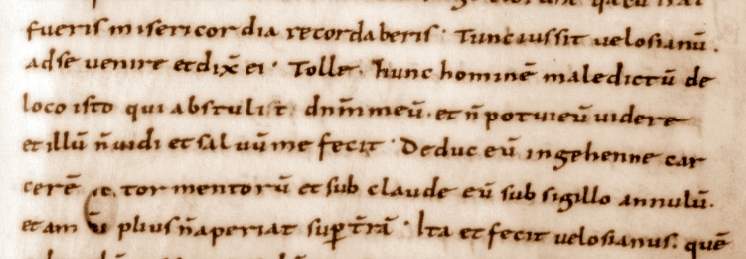 fueris misericordia recordaberis · Tunc iussit uelosianū.
adse uenire et dix̄ ei · Tolle hunc hominē maledictū de
loco isto qui abstulit dn̄m meū. et n̄ potui eū uidere
et illū n̄ uidi et saluū me fecit · Deduc eū in gehenne car
cerē et tormentorū et sub claude eū sub sigillo annulū.
et am plius n̄ aperiat sup t̄rā · Ita et fecit uelosianus. quē